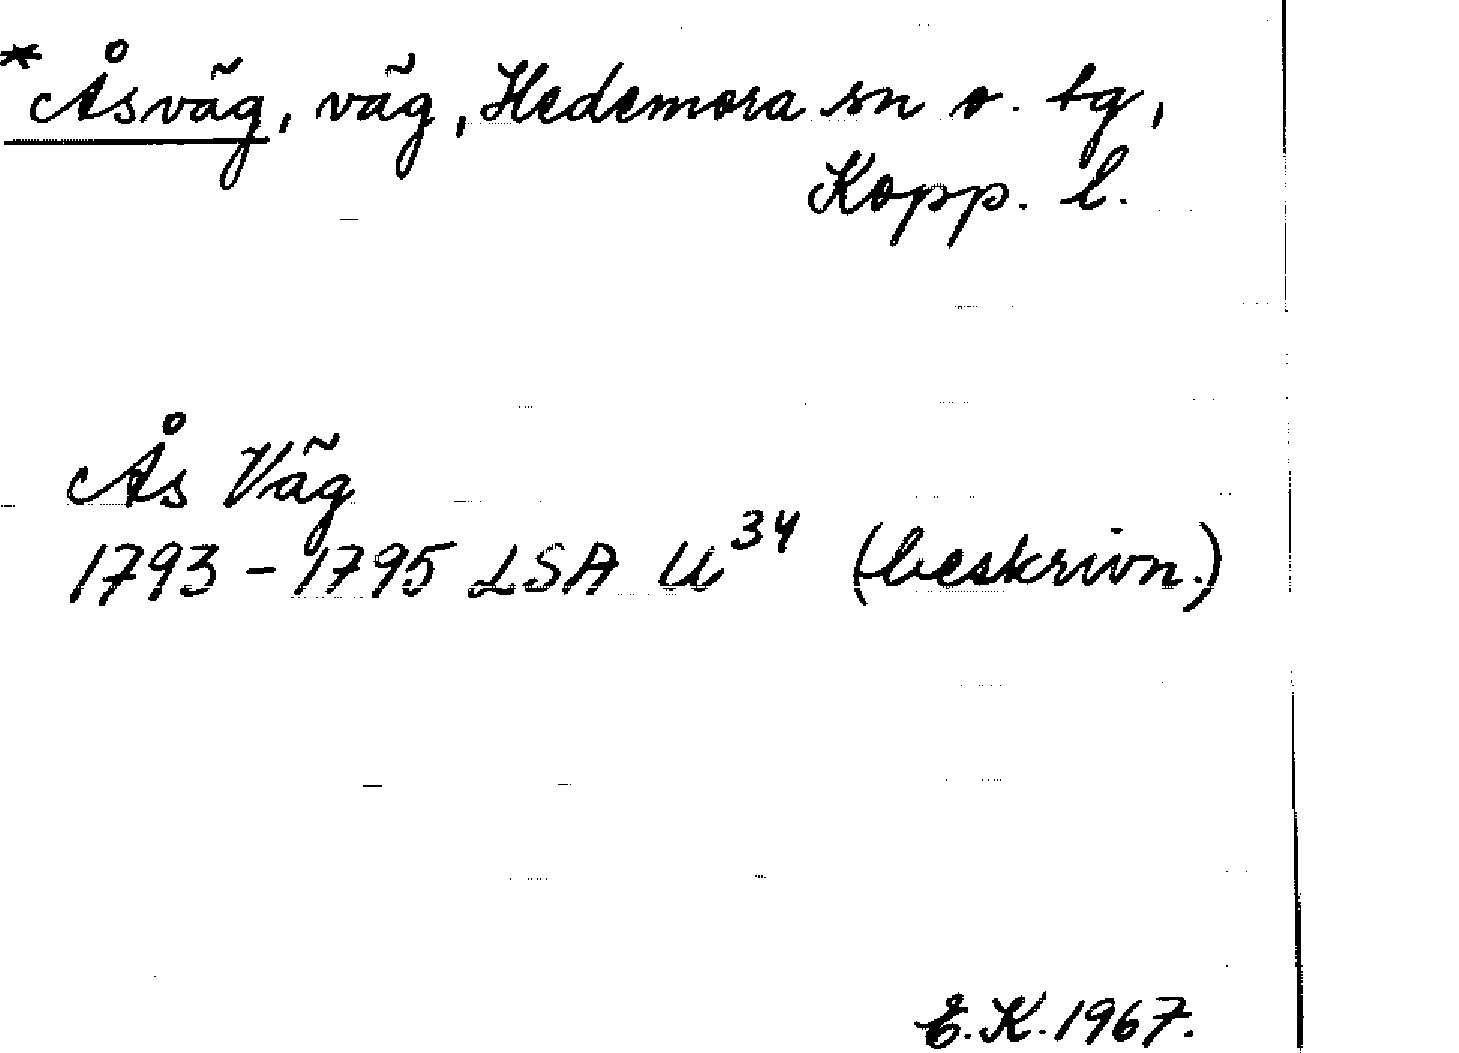 *Åsväg, väg, Hedemora sn o. tg,
Kopp. l.
Ås Väg
1793-1795 LSA U³⁴ (beskrivn.)
E.K. 1967.